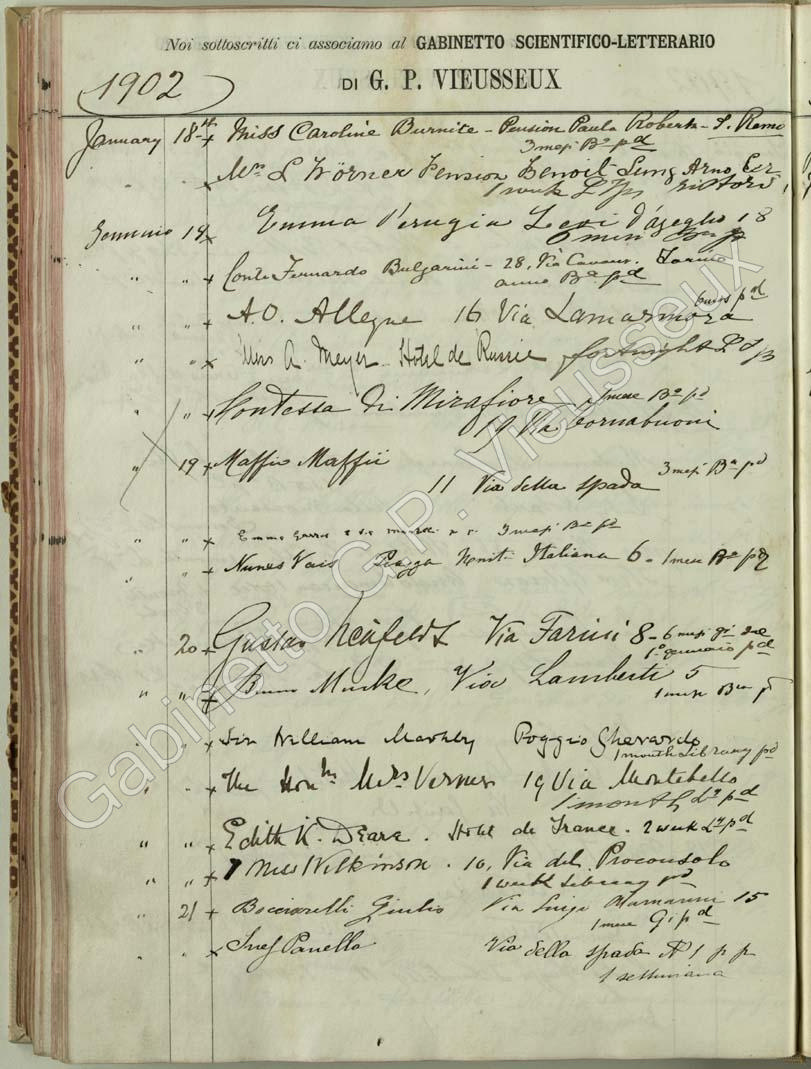 Noi sottoscritti ci associamo al GABINETTO SCIENTIFICO-LETTERARIO
DI G. P. VIEUSSEUX
1902
January 18th Miss Caroline Burnite - Pension Paula Roberta - S. Remo
3 mesi Ba pd
" Mrs L Wörner Pension Benoit Lung Arno
1 week Ly
Gennaio 19 Emma Perugia Levi D'azeglio 18
6 mesi
" " Conte Fernando Bulgarini - 28, Via Cavour. Torino
anno Ba. pd
" " A. O. Allegne 16 Via Lamarmora 6 mos pd
" " Miss A. Meyer - Hotel de Russie fortnight
" " Contessa Di Mirafiore 1 mese Ba pd
19 Via Tornabuoni
" 19 Maffio Maffii
11 Via della Spada 3 mesi Ba pd
" " Emma 3 mesi Ba pd
" Nunes Vais Piazza Italiana 6 - 1 mese Ba
" 20 Gustav Neufeldt Via Farini 8 - 6 mesi
1o gennaio pd
" " Bruno Via Lamberti 5
1 mese
" " Sir William Markby Poggio Gherardo
1 month Library pd
" " The Honble Mrs Verner 19 Via Montebello
1 month do pd
" " Edith K. Deare. Hotel de France. 2 week Ly pd
" " Miss Wilkinson. 10, Via del Proconsolo
1 week Library pd
" 21 Bocciarelli Giulio Via Luigi Alamanni 15
1 mese Gi pd
" " Panella Via della Spada No 1 p p
1 settimana
Gabinetto G.P. Vieusseux